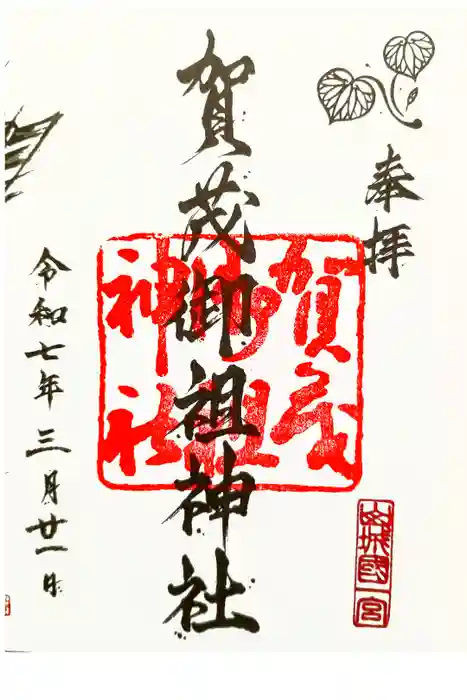 奉拝
山城國一宮
賀茂御祖神社
賀茂
御祖
神社
令和七年三月廿一日